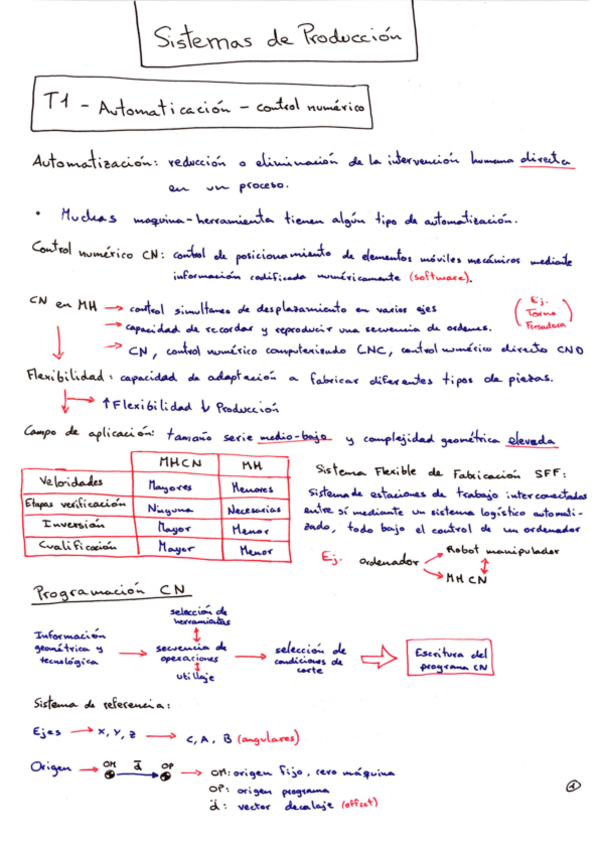 Sistemas de Producción
T1 - Automaticación - control numérico
Automatización: reducción o eliminación de la intervención humana directa
en un proceso.
• Muchas maquina-herramienta tienen algún tipo de automatización.
Control numérico CN: control de posicionamiento de elementos móviles mecánicos mediante
información codificada numéricamente (software).
CN en MH → control simultaneo de desplazamiento en varios ejes
(Ej. Torno Fresadora)
→ capacidad de recordar y reproducir una secuencia de ordenes.
→ CN, control numérico computerizado CNC, control numérico directo CND
Flexibilidad: capacidad de adaptación a fabricar diferentes tipos de piezas.
→ ↑ Flexibilidad ↓ Producción
Campo de aplicación: tamaño serie medio-bajo y complejidad geométrica elevada
MHCN MH
Velocidades Mayores Menores
Etapas verificación Ninguna Necesarias
Inversión Mayor Menor
Cualificación Mayor Menor
Sistema Flexible de Fabricación SFF:
sistema de estaciones de trabajo interconectadas
entre sí mediante un sistema logístico automati-
zado, todo bajo el control de un ordenador
Ej. ordenador → Robot manipulador
→ MHCN
Programación CN
Información
geométrica y
tecnológica
→
selección de
herramientas
↕
secuencia de
operaciones
↕
utillaje
→
selección de
condiciones de
corte
⇒
Escritura del
programa CN
Sistema de referencia:
Ejes → X, Y, Z → C, A, B (angulares)
Origen → OM d OP → OM: origen fijo, cero máquina
OP: origen programa
d: vector decalaje (offset)
1